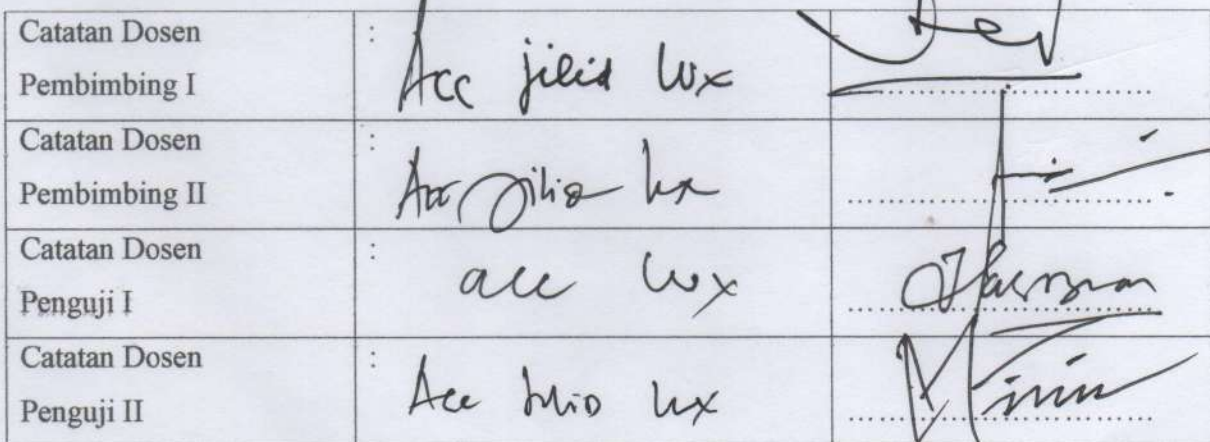 Catatan Dosen
Pembimbing I
: Acc jilid lux
Catatan Dosen
Pembimbing II
: Acc jilid lux
Catatan Dosen
Penguji I
: acc lux
Catatan Dosen
Penguji II
: Acc jilid lux